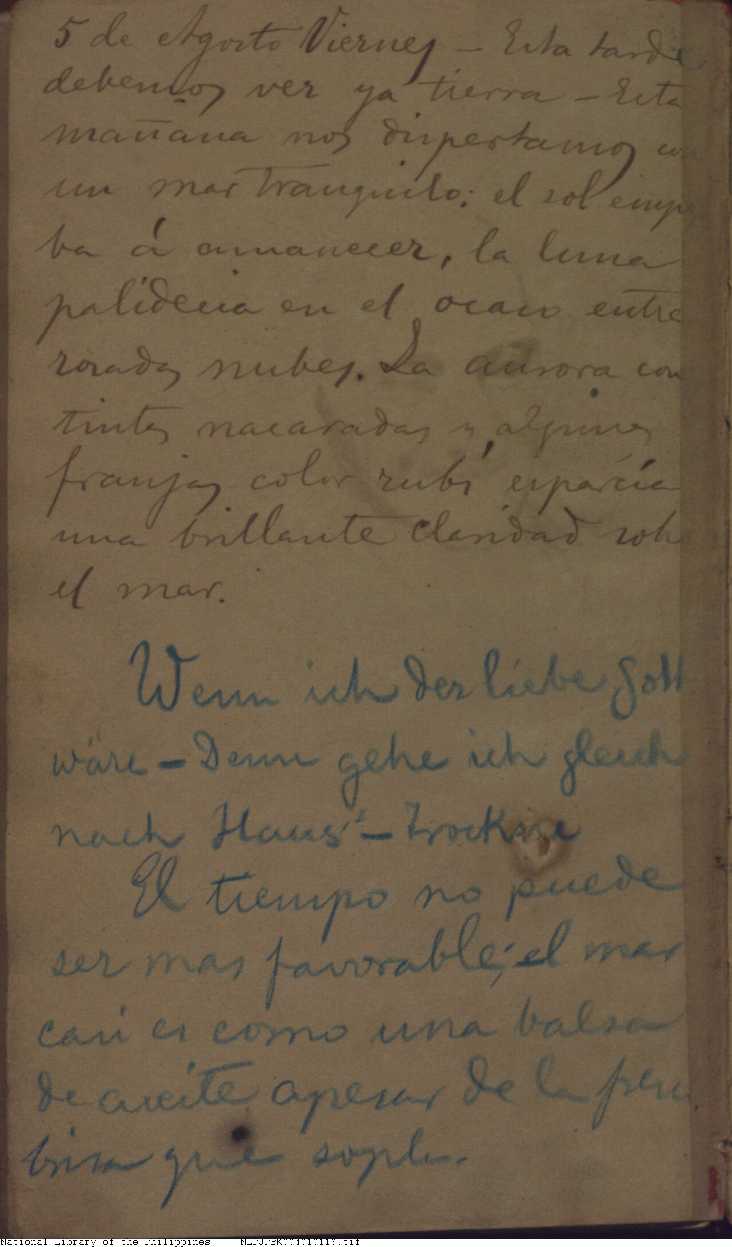 5 de Agosto Viernes – Esta tarde
debemos ver ya tierra – Esta
mañana nos dispertamos con
un mar tranquilo: el sol empe
ba á amanecer, la luna
palidecia en el ocaso entre
rosadas nubes. La aurora con
tintes nacaradas y algunas
franjas color rubí esparcía
una brillante claridad sob
el mar.
Wenn ich der liebe Gott
wäre – Denn gehe ich gleich
nach Haus' – Trockne
El tiempo no puede
ser mas favorable; el mar
casi es como una balsa
de aceite apesar de la fresc
brisa que sopla.
National Library of the Philippines